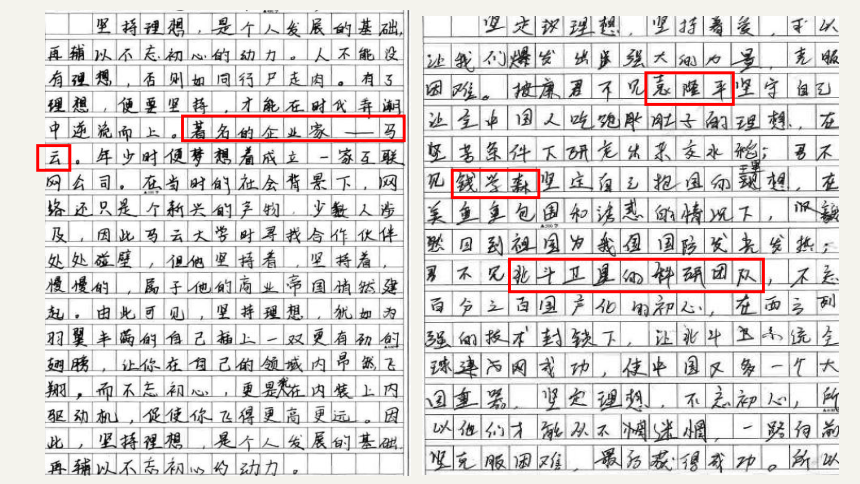 坚持理想，是个人发展的基础，
再辅以不忘初心的动力。人不能没
有理想，否则如同行尸走肉。有了
理想，便要坚持，才能在时代奔潮
中逆流而上。著名的企业家——马
云。年少时便梦想着成立一家互联
网公司。在当时的社会背景下，网
络还只是个新兴的产物，少数人涉
及，因此马云大学时寻找合作伙伴
处处碰壁，但他坚持着，坚持着，
慢慢的，属于他的商业帝国悄然建
起。由此可见，坚持理想，犹如为
羽翼丰满的自己插上一双更有劲的
翅膀，让你在自己的领域内昂然飞
翔。而不忘初心，更是在内装上内
驱动机，促使你飞得更高更远。因
此，坚持理想，是个人发展的基础，
再辅以不忘初心的动力。
坚定理想，坚持着爱，可以
让我们爆发出强大的力量，克服
困难。君不见袁隆平坚守自己
让全中国人吃饱肚子的理想，在
坚苦条件下研究出杂交水稻；君不
见钱学森坚定自己抱国的理想，在
美重重包围和的情况下，毅
然回到祖国为我国国防发光发热；
君不见北斗卫星的科研团队，不忘
百分之百国产化的初心，在西方列
强的技术封锁下，让北斗卫系统全
球建为网成功，使中国又多一个大
国重器。坚定理想，不忘初心，所
以他们才能从不惆迷惘，一路向前
坚克服困难，最终获得成功。所以